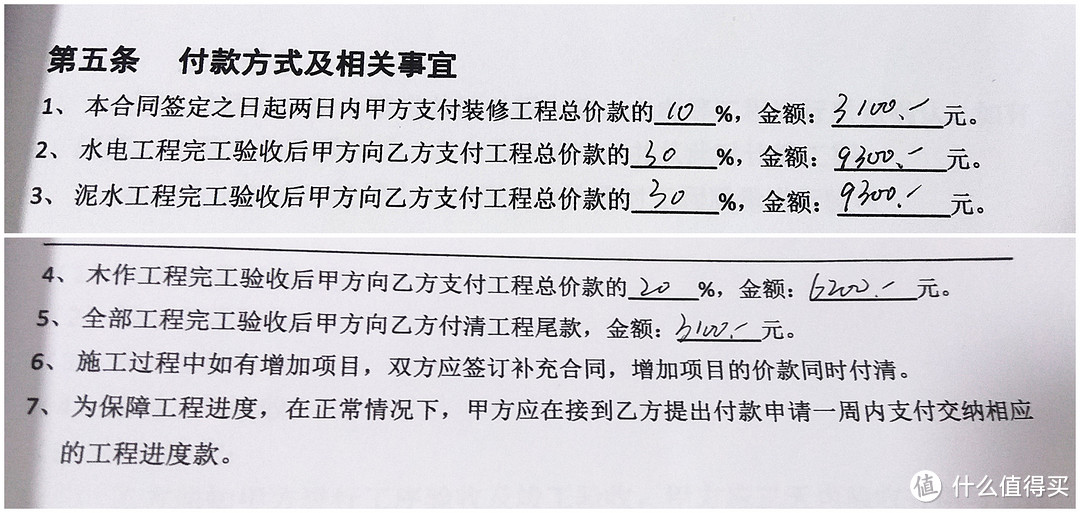 第五条 付款方式及相关事宜
1、本合同签定之日起两日内甲方支付装修工程总价款的10%，金额：3100.-元。
2、水电工程完工验收后甲方向乙方支付工程总价款的30%，金额：9300.-元。
3、泥水工程完工验收后甲方向乙方支付工程总价款的30%，金额：9300.-元。
4、木作工程完工验收后甲方向乙方支付工程总价款的20%，金额：6200.-元。
5、全部工程完工验收后甲方向乙方付清工程尾款，金额：3100.-元。
6、施工过程中如有增加项目，双方应签订补充合同，增加项目的价款同时付清。
7、为保障工程进度，在正常情况下，甲方应在接到乙方提出付款申请一周内支付交纳相应
的工程进度款。
值 什么值得买